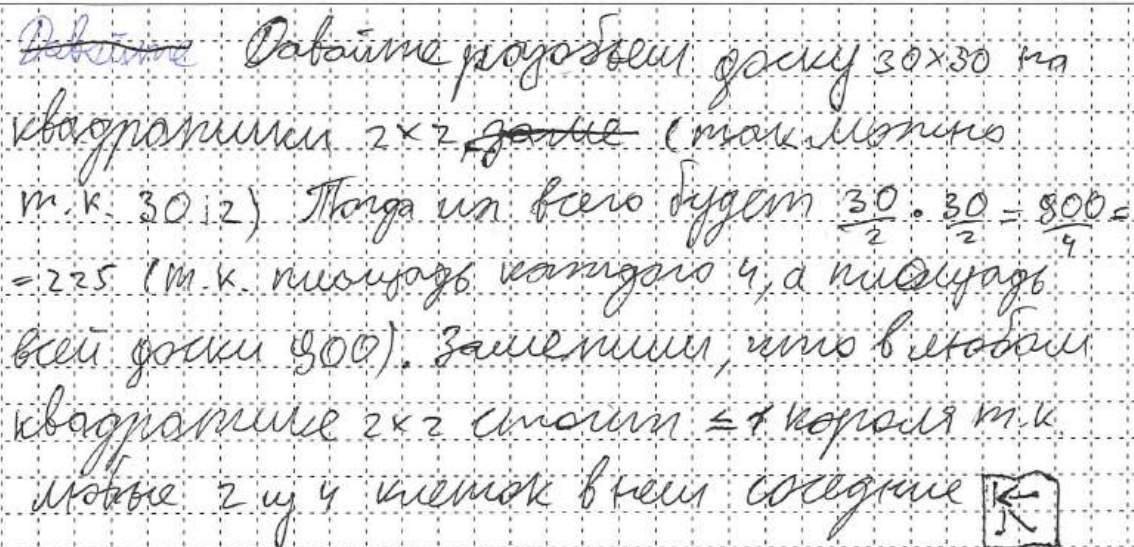 Давайте Давайте разобьем доску 30×30 на
квадратики 2×2 (так можно
т.к. 30⋮2) Тогда их всего будет 30/2 · 30/2 = 900/4 =
=225 (т.к. площадь каждого 4, а площадь
всей доски 900). Заметим, что в любом
квадратике 2×2 стоит ≤1 короля т.к.
любые 2 из 4 клеток в нем соседние